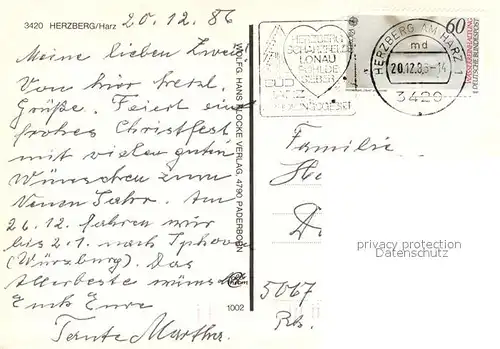 3420 HERZBERG/Harz
20.12.86
Meine lieben Zwei!
Von hier herzl.
Grüße. Feiert ein
frohes Christfest
mit vielen guten
Wünschen zum
Neuen Jahr. Am
26.12. fahren wir
bis 2.1. nach Iphofen
(Würzburg). Das
Allerbeste wünscht
Euch Eure
Tante Martha
WOLFG. HANS KLOCKE VERLAG, 4790 PADERBORN
1002
HERZBERG
SCHARZFELD
LONAU
SIEBER
SÜD
HARZ
HERZBERG AM HARZ 1
md
20.12.86-14
3420
60
DEUTSCHE BUNDESPOST
Familie
He
D
privacy protection
Datenschutz
5067